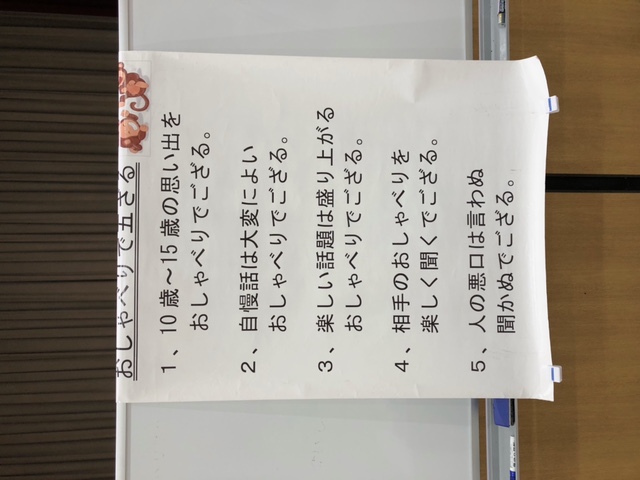 おしゃべりで五ざる
1、10歳～15歳の思い出を
おしゃべりでござる。
2、自慢話は大変によい
おしゃべりでござる。
3、楽しい話題は盛り上がる
おしゃべりでござる。
4、相手のおしゃべりを
楽しく聞くでござる。
5、人の悪口は言わぬ
聞かぬでござる。